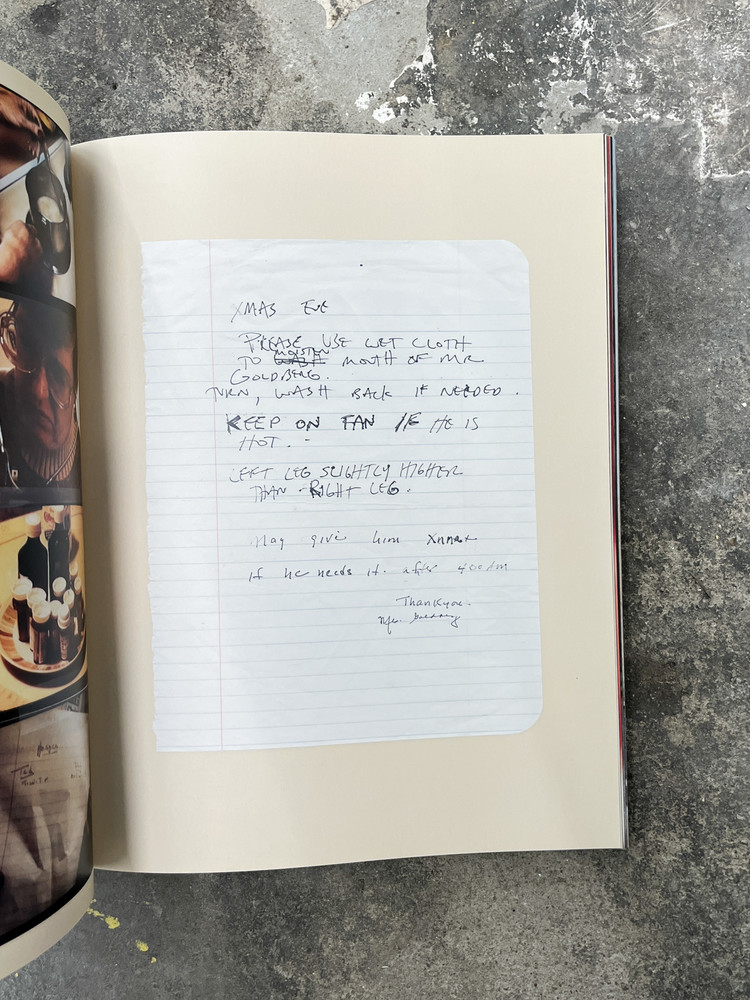 XMAS EVE
PLEASE USE WET CLOTH
TO MOISTEN MOUTH OF MR.
GOLDBERG.
TURN, WASH BACK IF NEEDED.
KEEP ON FAN IF HE IS
HOT.
LEFT LEG SLIGHTLY HIGHER
THAN RIGHT LEG.
May give him Xanax
if he needs it. after 4:00 AM
Thank you.